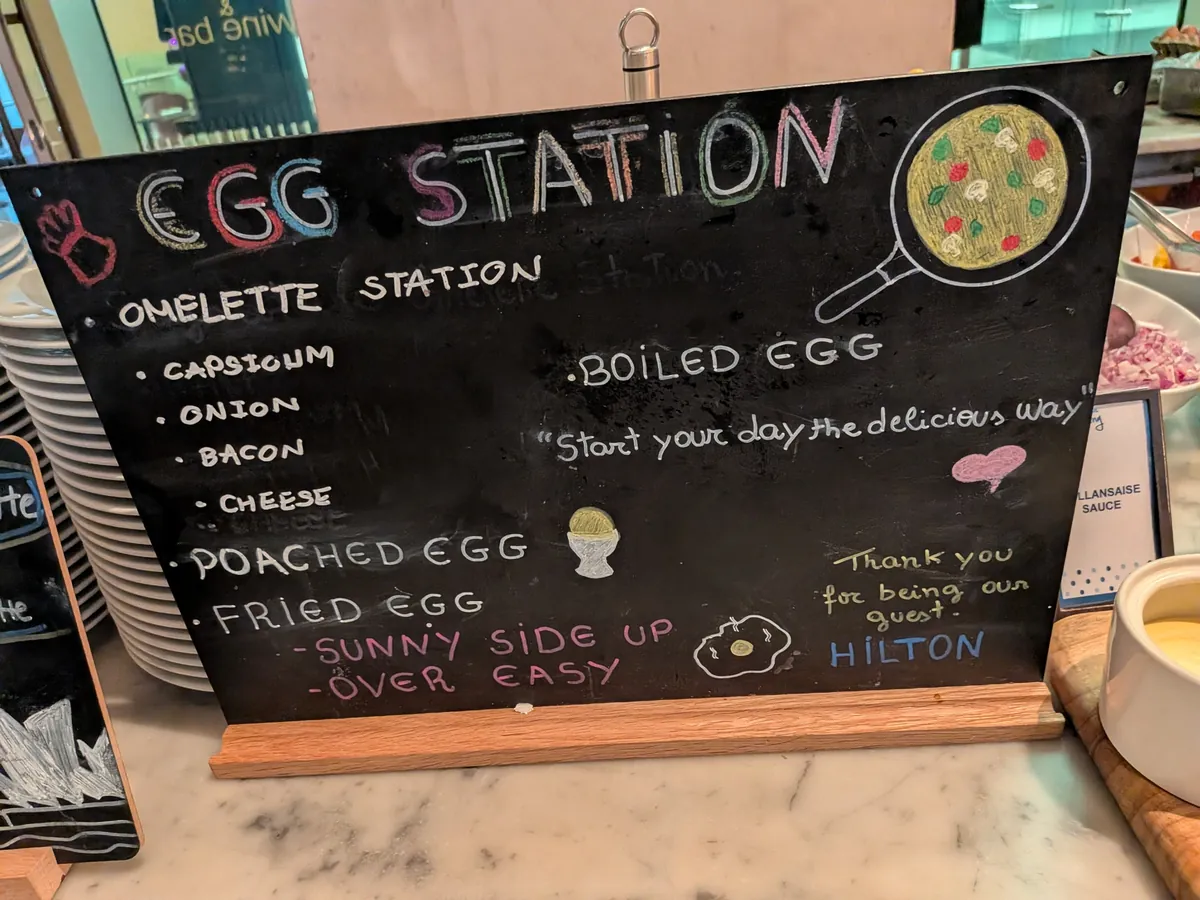 &
wine bar
EGG STATION
OMELETTE STATION
• CAPSICUM
• ONION
• BACON
• CHEESE
• POACHED EGG
• FRIED EGG
- SUNNY SIDE UP
- OVER EASY
• BOILED EGG
"Start your day the delicious way"
Thank you
for being our
guest.
HILTON
LLANSAISE
SAUCE